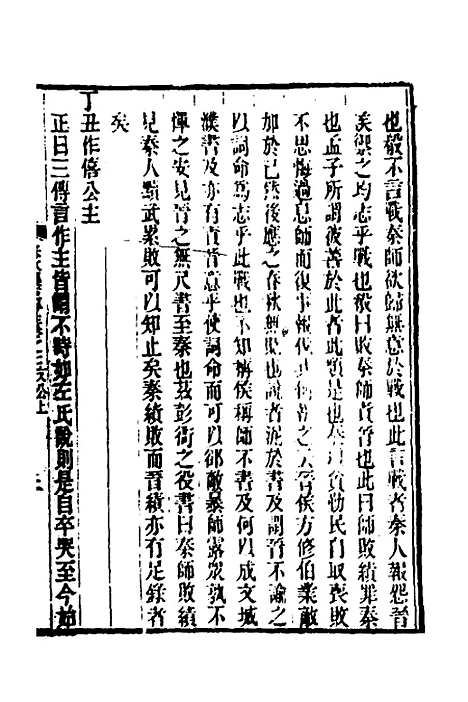 也殽不言戰秦師欲歸無意於戰也此言戰者秦人報怨晉
矦禦之均志乎戰也殽曰敗秦師責晉也此曰師敗績罪秦
也孟子所謂彼善於此者此類是也秦 貪勤民自取喪敗
不思悔過息師而復事報伐 晉侯方修伯業敵
加於已然後應之春秋無貶也說者泥於書及謂晉不諭之
以詞命爲志乎此戰也不知稱侯稱師不書及何以成文城
濮書及亦有責晉意乎使詞命而可以郤敵暴師露眾孰不
憚之安見晉之無尺書至秦也茲彭衙之役書曰秦師敗績
見秦人黷武累敗可以知止矣秦績敗而晉績亦有足錄者
矣
丁丑作僖公主
正曰三傳言作主皆關不時如左氏說則是自卒哭至今始
公上